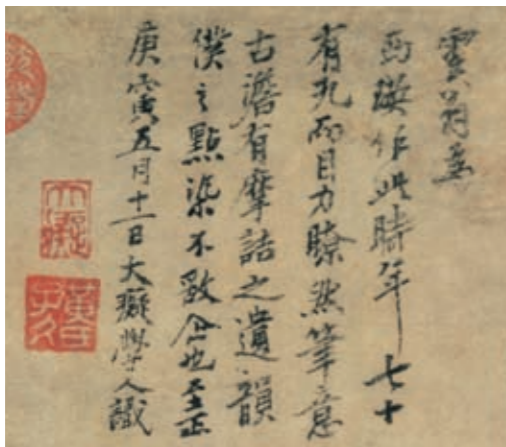 雲翁為
西瑛作此時年七十
有九而目力瞭然筆意
古澹有摩詰之遺韻
僕之點染不敢企也至正
庚寅五月十一日大癡學人識
大癡
黃氏子久